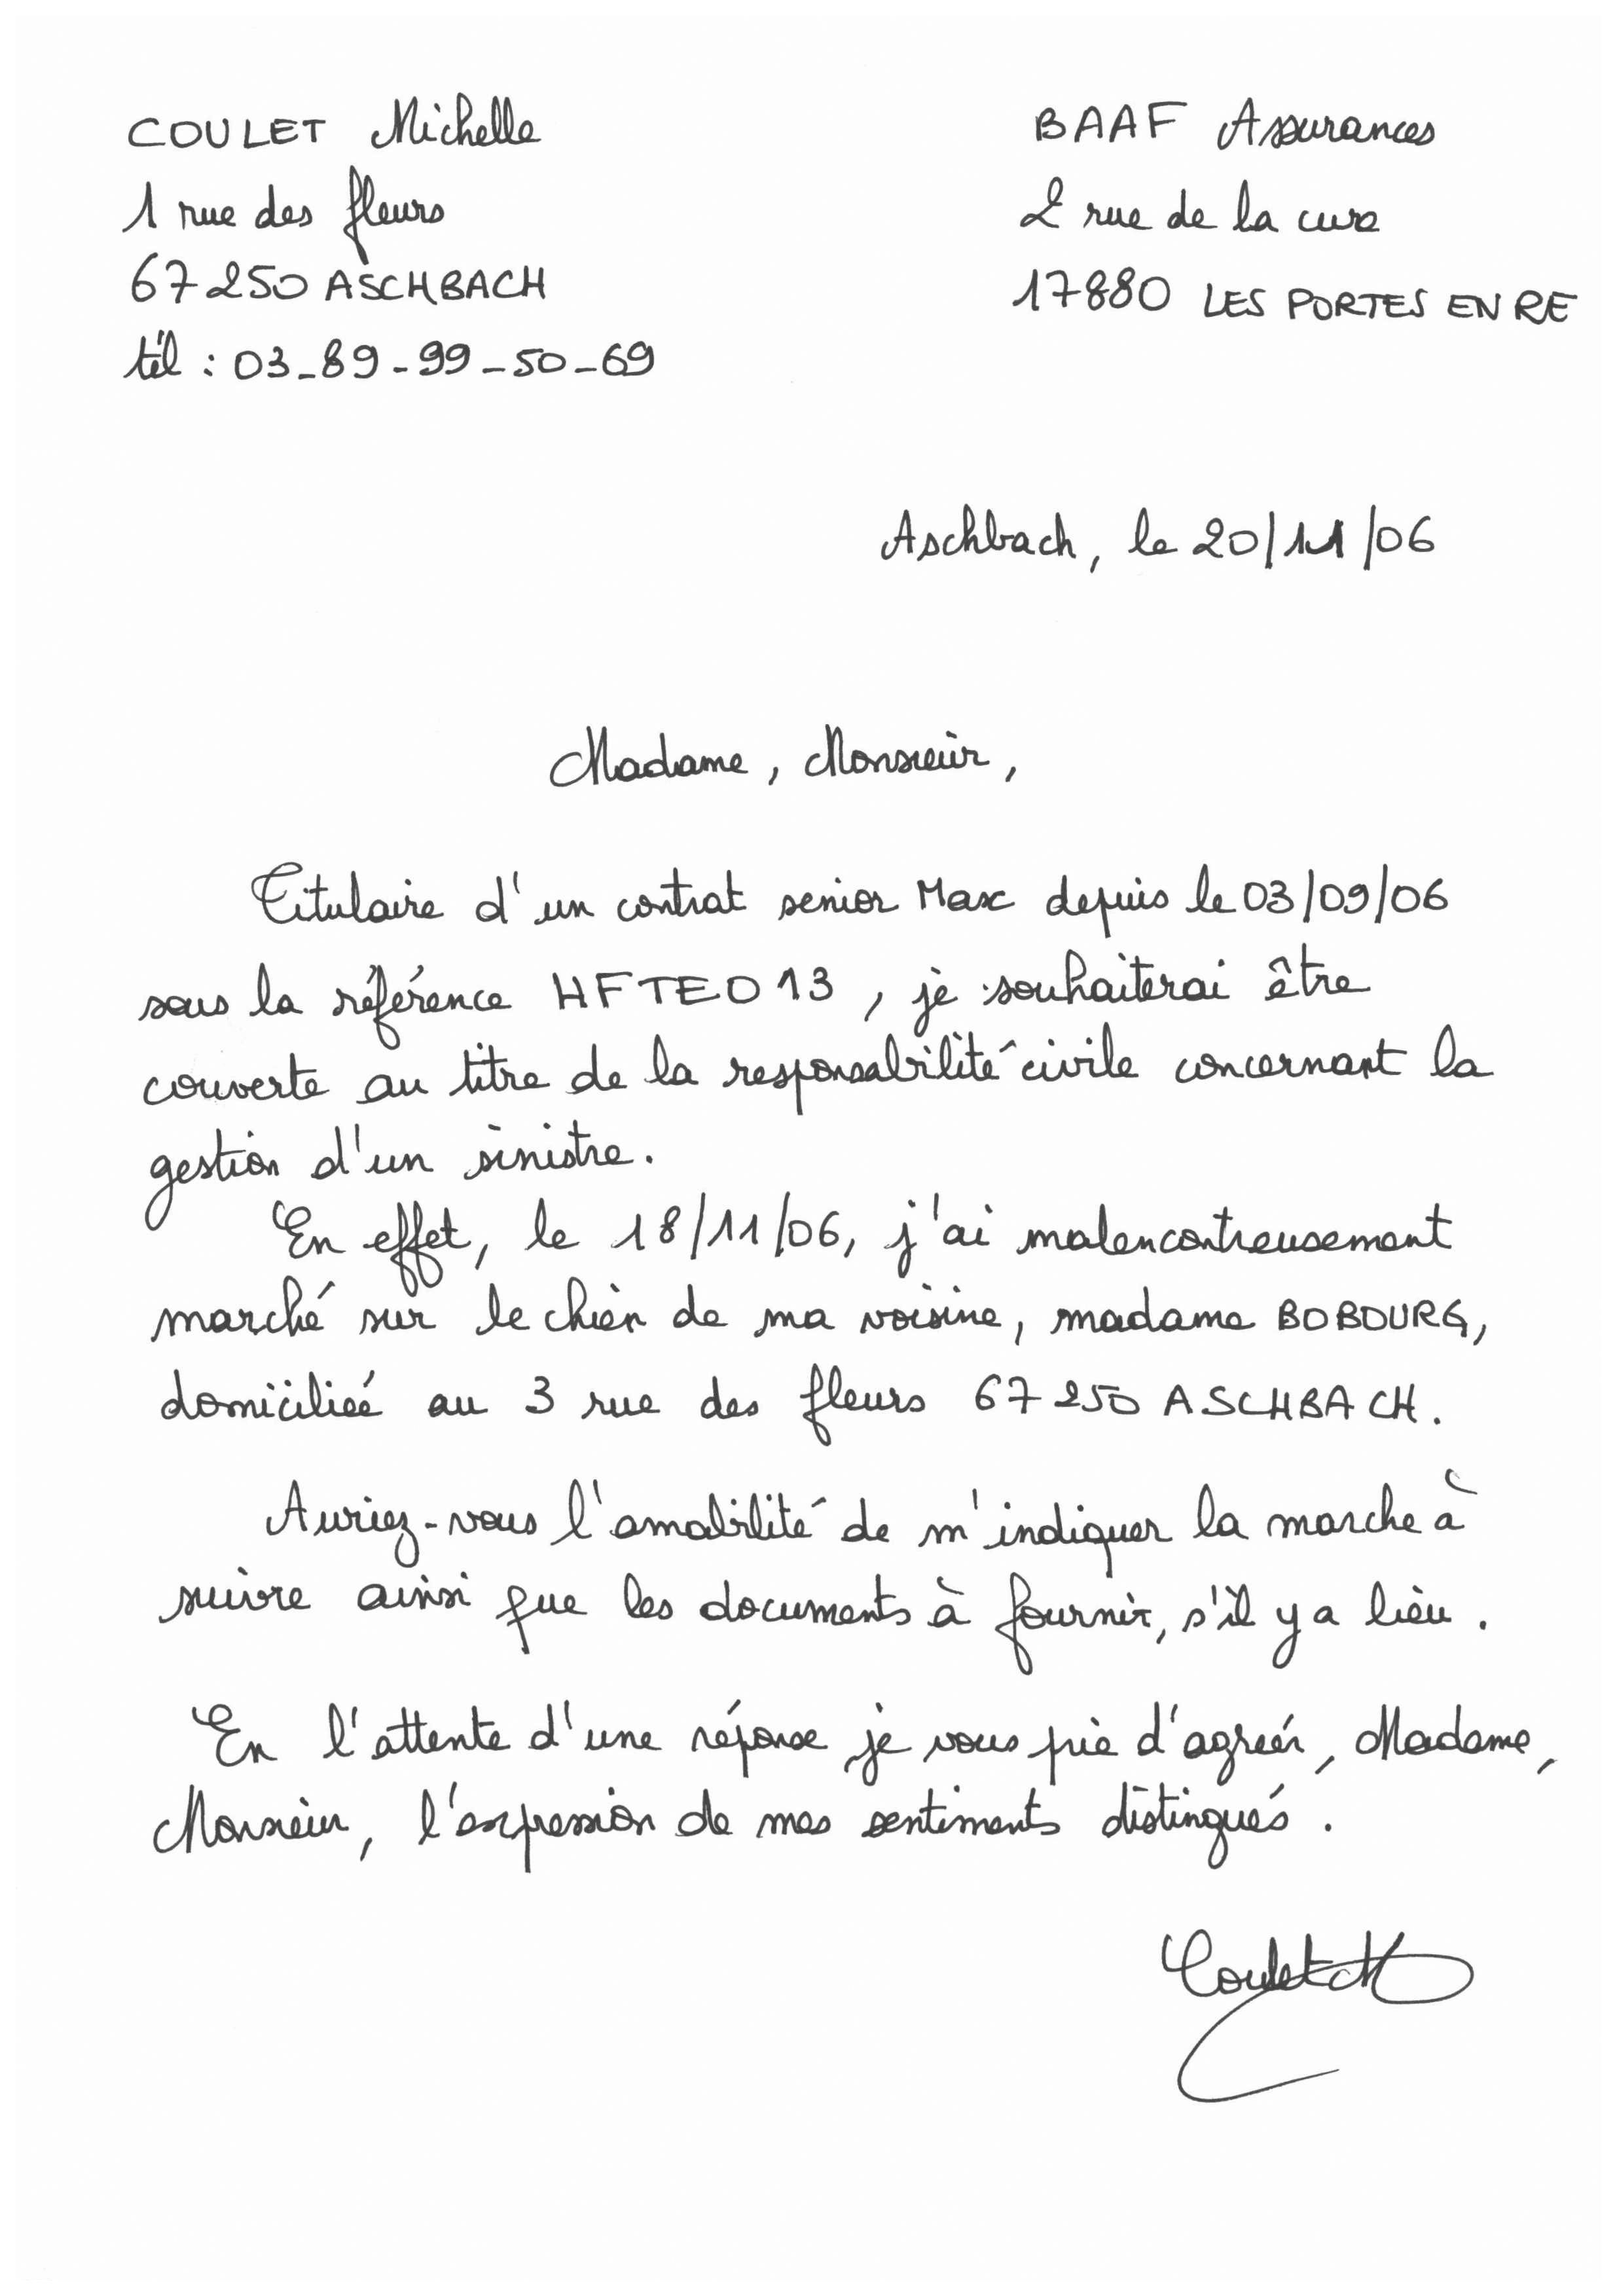 COULET Michelle
1 rue des fleurs
67250 ASCHBACH
tél : 03-89-99-50-69
BAAF Assurances
2 rue de la cure
17880 LES PORTES EN RE
Aschbach, le 20/11/06
Madame, Monsieur,
Titulaire d'un contrat senior Max depuis le 03/09/06
sous la référence HFTEO13, je souhaiterai être
couverte au titre de la responsabilité civile concernant la
gestion d'un sinistre.
En effet, le 18/11/06, j'ai malencontreusement
marché sur le chien de ma voisine, madame BOBOURG,
domiciliée au 3 rue des fleurs 67250 ASCHBACH.
Auriez-vous l'amabilité de m'indiquer la marche à
suivre ainsi que les documents à fournir, s'il y a lieu.
En l'attente d'une réponse je vous prie d'agréer, Madame,
Monsieur, l'expression de mes sentiments distingués.
Coulet M